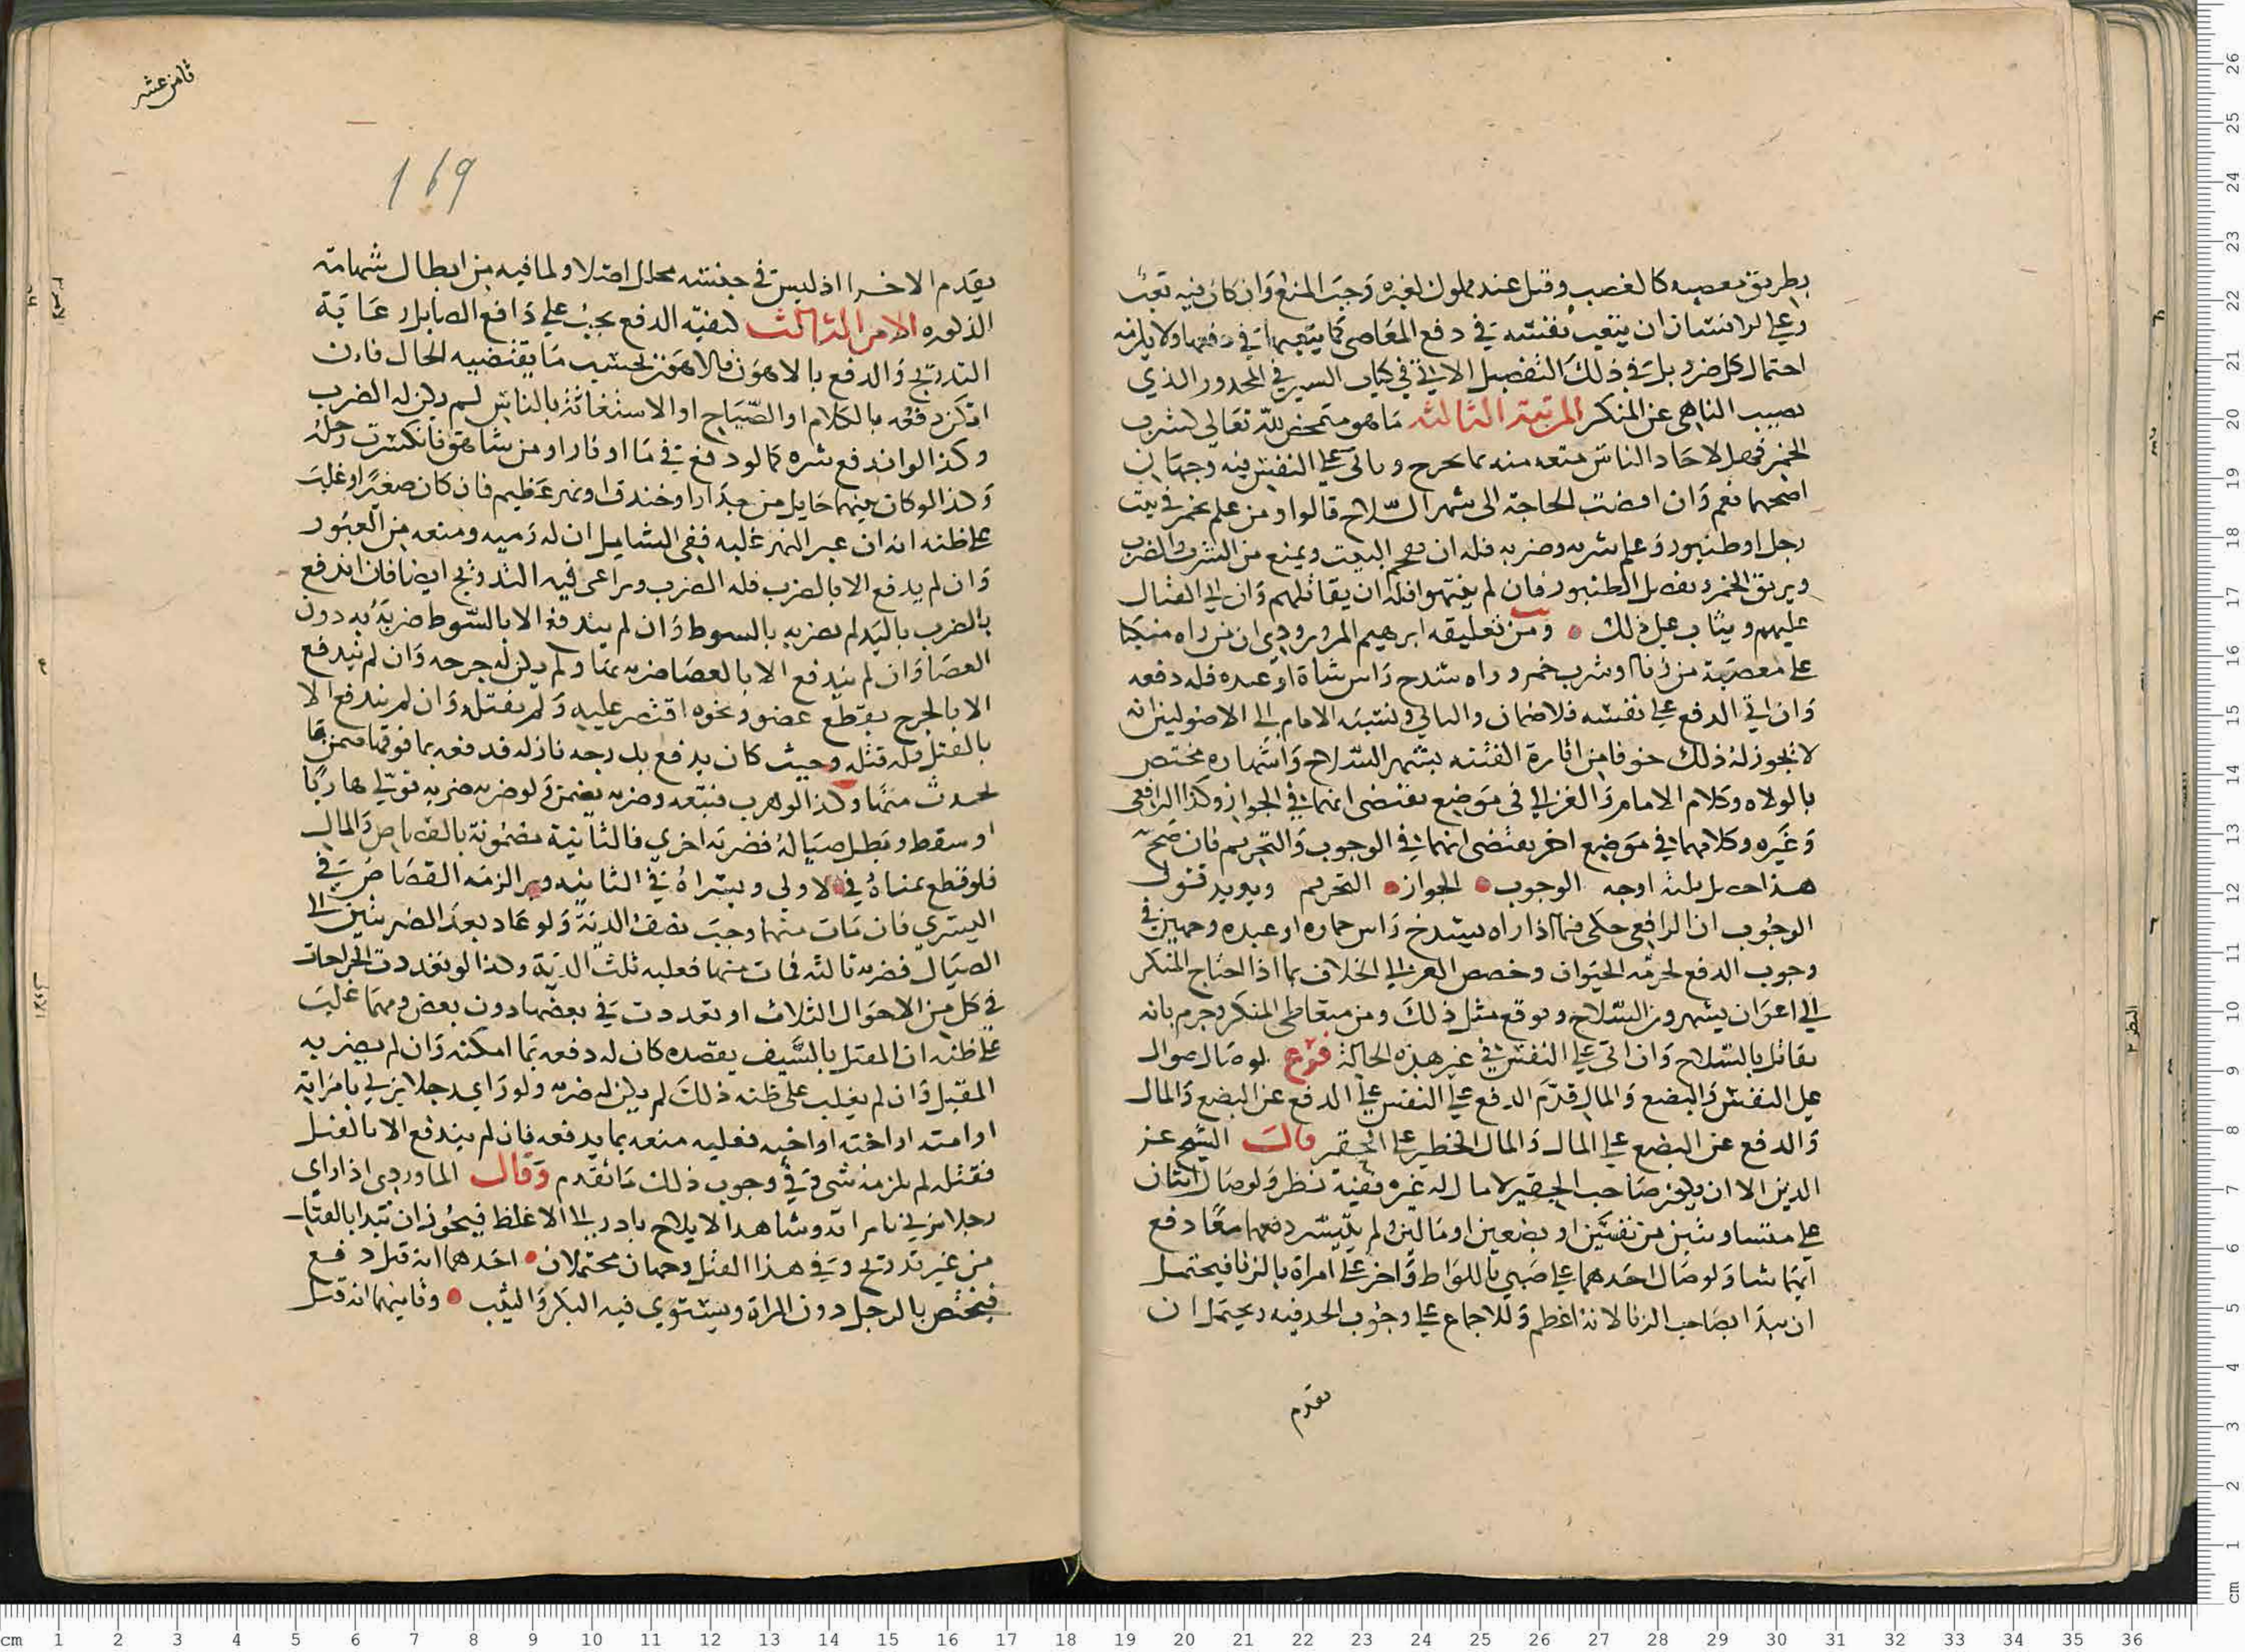 بطريق معصيه كالغصب وقتل عبد مملوك لغيره وجب المنع وان كان فيه تعب
وعلى الانسان ان يتعب نفسه في دفع المعاصي كما يتعبها في دفعها ولا يلزمه
احتمال كل ضرر بل في ذلك التفصيل الاتي في كتاب السير في المحذور الذي
نصيب الناهي عن المنكر المرتبة الثالثه ما هو متمحض لله تعالى كشرب
الخمر فهل لاحاد الناس منعه منه بما يجرح وياتي على النفس فيه وجهان
اصحهما نعم وان افضت الحاجة الى شهر السلاح قالوا ومن علم بخمر في بيت
رجل او طنبور وعلم بشربه وضربه فله ان يهجم البيت ويمنع من الشرب والضرب
ويريق الخمر ويفصل الطنبور فان لم ينتهوا فله ان يقاتلهم وان اتى القتال
عليهم ويثاب على ذلك وفي تعليقه ابرهيم المروروذي ان من راه منكبا
على معصية من زنا او شرب خمر وراه يشدخ راس شاة او عبده فله دفعه
وان اتى الدفع على نفسه فلا ضمان والثاني ونسبه الامام الى الاصوليين انه
لا يجوز له ذلك خوفا من اثارة الفتنه بشهر السلاح واشهاره مختص
بالولاه وكلام الامام والغزالي في موضع يقتضي انهما في الجواز وكذا الرافعي
وغيره وكلامهما في موضع اخر يقتضي انهما في الوجوب والتحريم فان صح
هذا حصل ثلثة اوجه الوجوب الجواز التحريم ويويد قتول
الوجوب ان الرافعي حكى فيما اذا راه يشدخ راس حماره او عبده وجهين في
وجوب الدفع لحرمة الحيوان وخصص الغزالي الخلاف بما اذا احتاج المنكر
الى اعوان يشهرون السلاح وتوقع مثل ذلك ومن متعاطي المنكر وجزم بانه
يقاتل بالسلاح وان اتى على النفس في غير هذه الحالة فرع لو صال صوال
على النفس والبضع والمال قدم الدفع على النفس على الدفع عن البضع والمال
والدفع عن البضع على المال والمال الخطير على الحقير قالت الشيخ عز
الدين الا ان يكون صاحب الحقير لا مال له غيره ففيه نظر ولو صال اثنان
على متساويين من نفسين او بضعين او مالين ولم يتيسر دفعهما معا دفع
ايهما شا ولو صال احدهما على صبي باللواط واخر على امراة بالزنا فيحتمل
ان يبدا بصاحب الزنا لانه اغلظ وللاجماع على وجوب الحد فيه ويحتمل ان
تقدم
ثامن عشر
169
يقدم الاخر اذ ليس في جنسه محلل اصلا ولما فيه من ابطال شهامته
الذكوره الامر الثالث كيفية الدفع يجب على دافع الصايل رعاية
التدريج والدفع بالاهون فالاهون بحسب ما يقتضيه الحال فان
امكن دفعه بالكلام او الصياح او الاستغاثة بالناس لم يكن له الضرب
وكذا لو اندفع شره كما لو دفع في ما او نار او من شاهق فانكسرت رجله
وكذا لو كان بينهما حايل من جدار او خندق او نهر عظيم فان كان صغيرا وغلب
على ظنه انه ان عبر النهر غلبه ففي الشامل ان له رميه ومنعه من العبور
وان لم يدفع الا بالضرب فله الضرب ويراعى فيه التدريج ايضا فان اندفع
بالضرب باليد لم يضربه بالسوط وان لم يندفع الا بالسوط ضربه به دون
العصا وان لم يندفع الا بالعصا ضربه بها ولم يكن له جرحه وان لم يندفع
الا بالجرح بقطع عضو ونحوه اقتصر عليه ولم يقتله وان لم يندفع الا
بالقتل فله قتله وحيث كان يدفع بدرجه نازله فدفعه بما فوقها ضمن ما
يحدث منها وكذا لو هرب فتبعه وضربه يضمن ولو ضربه ضربه فولى هاربا
او سقط وبطل صياله فضربه اخرى فالثانية مضمونة بالقصاص والمال
فلو قطع يمناه في الاولى ويسراه في الثانيه وبرا لزمه القصاص في
اليسرى فان مات منهما وجب نصف الدية ولو عاد بعد الضربتين الى
الصيال فضربه ثالثه فمات منها فعليه ثلث الدية وكذا لو تعددت الجراحات
في كل من الاحوال الثلاث او تعددت في بعضها دون بعض ومهما غلب
على ظنه ان المقبل بالسيف يقصده كان له دفعه بما امكنه وان لم يضربه
المقبل وان لم يغلب على ظنه ذلك لم يكن له ضربه ولو راى رجلا يزني بامراته
او امته او اخته او اخيه فعليه منعه بما يدفعه فان لم يندفع الا بالقتل
فقتله لم يلزمه شي وفي وجوب ذلك ما تقدم وقال الماوردي اذا راى
رجلا يزني بامراته وشاهد الايلاج بادر الى الاغلظ فيجوز ان يبدا بالقتل
من غير تدريج وفي هذا القتل وجهان محتملان احدهما انه قتل دفع
فيختص بالرجل دون المراة ويستوي فيه البكر والثيب وثانيهما انه قتل